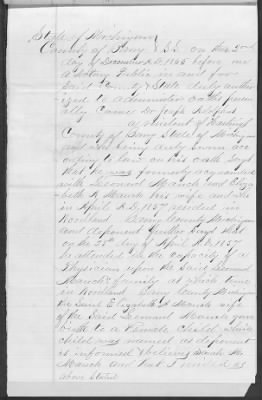 State of Michigan
County of Barry } S.S. on this 2nd
day of December A.D. 1865 before me
a Notary Public in and for
Said County & State duly author
ized to administer oaths person
ally Came Dr Joseph
a resident of Hastings
County of Barry State of Michig
an who being duly sworn ac
cording to law on his oath Says
that he was formerly acquainted
with Leonard Mauch and Eliza
beth A Mauch his wife and
in April A.D. 1857 resided in
Woodland Barry County Michigan
and deponent further Says that
on the 25th day of April A.D. 1857
he attended in the capacity of a
Physician upon the Said Leonard
Mauch's family at which time
in Woodland Barry County Michigan
the Said Elizabeth A Mauch wife
of the Said Leonard Mauch gave
birth to a Female Child which
child was named as deponent
is informed & believes
Mauch and that I resided as
above Stated